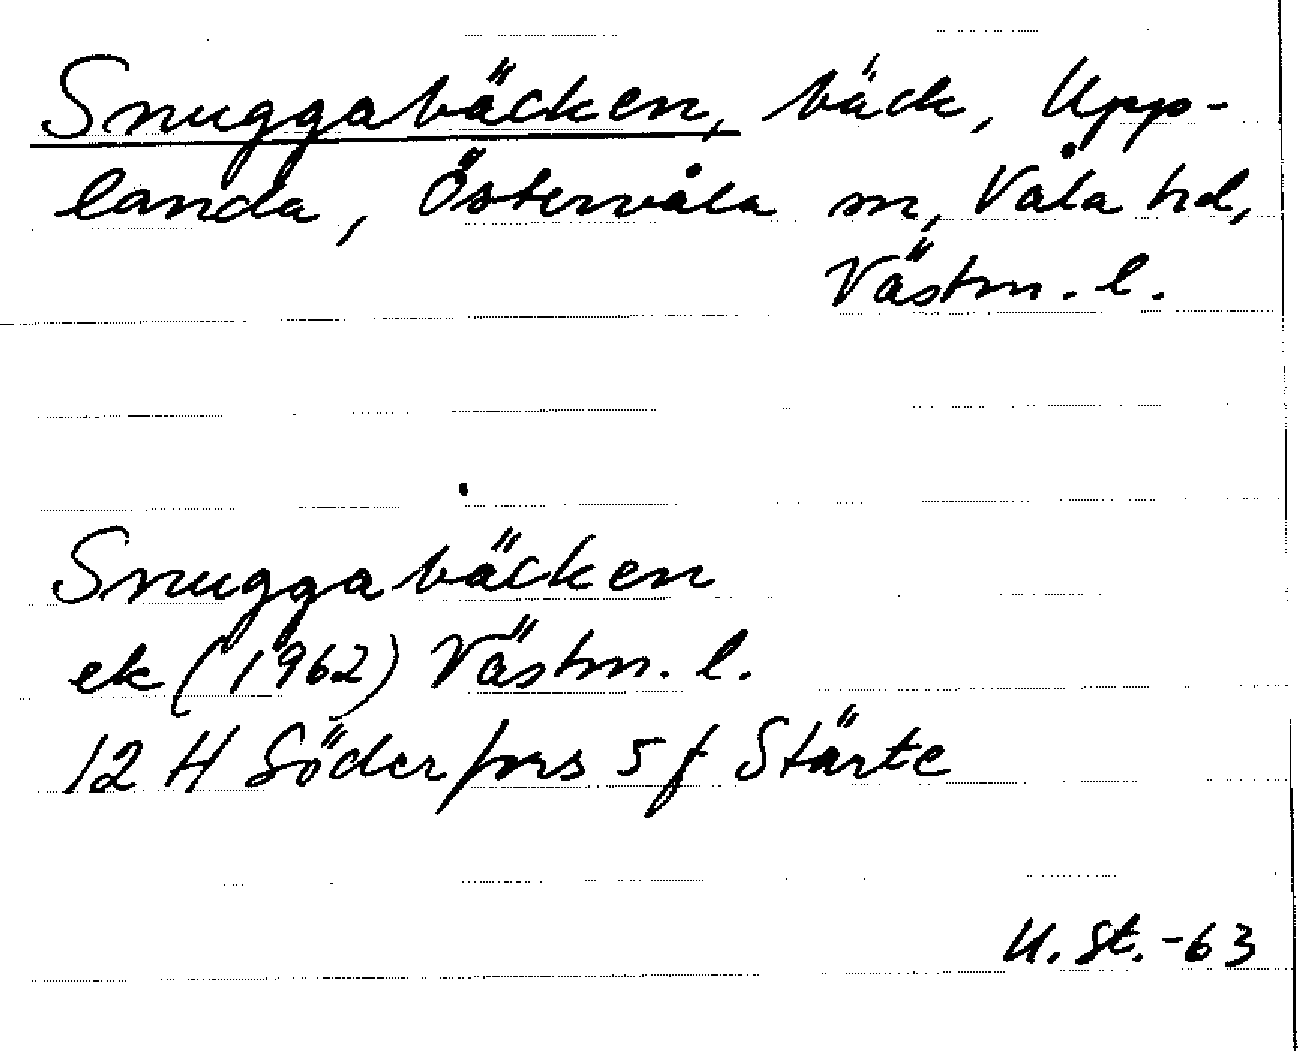 Snuggabäcken, bäck, Upp-
landa, Östervåla sn, Våla hd,
Västm. l.
Snuggabäcken
ek (1962) Västm. l.
12 H Söderfors 5 f Stärte
U. St. -63